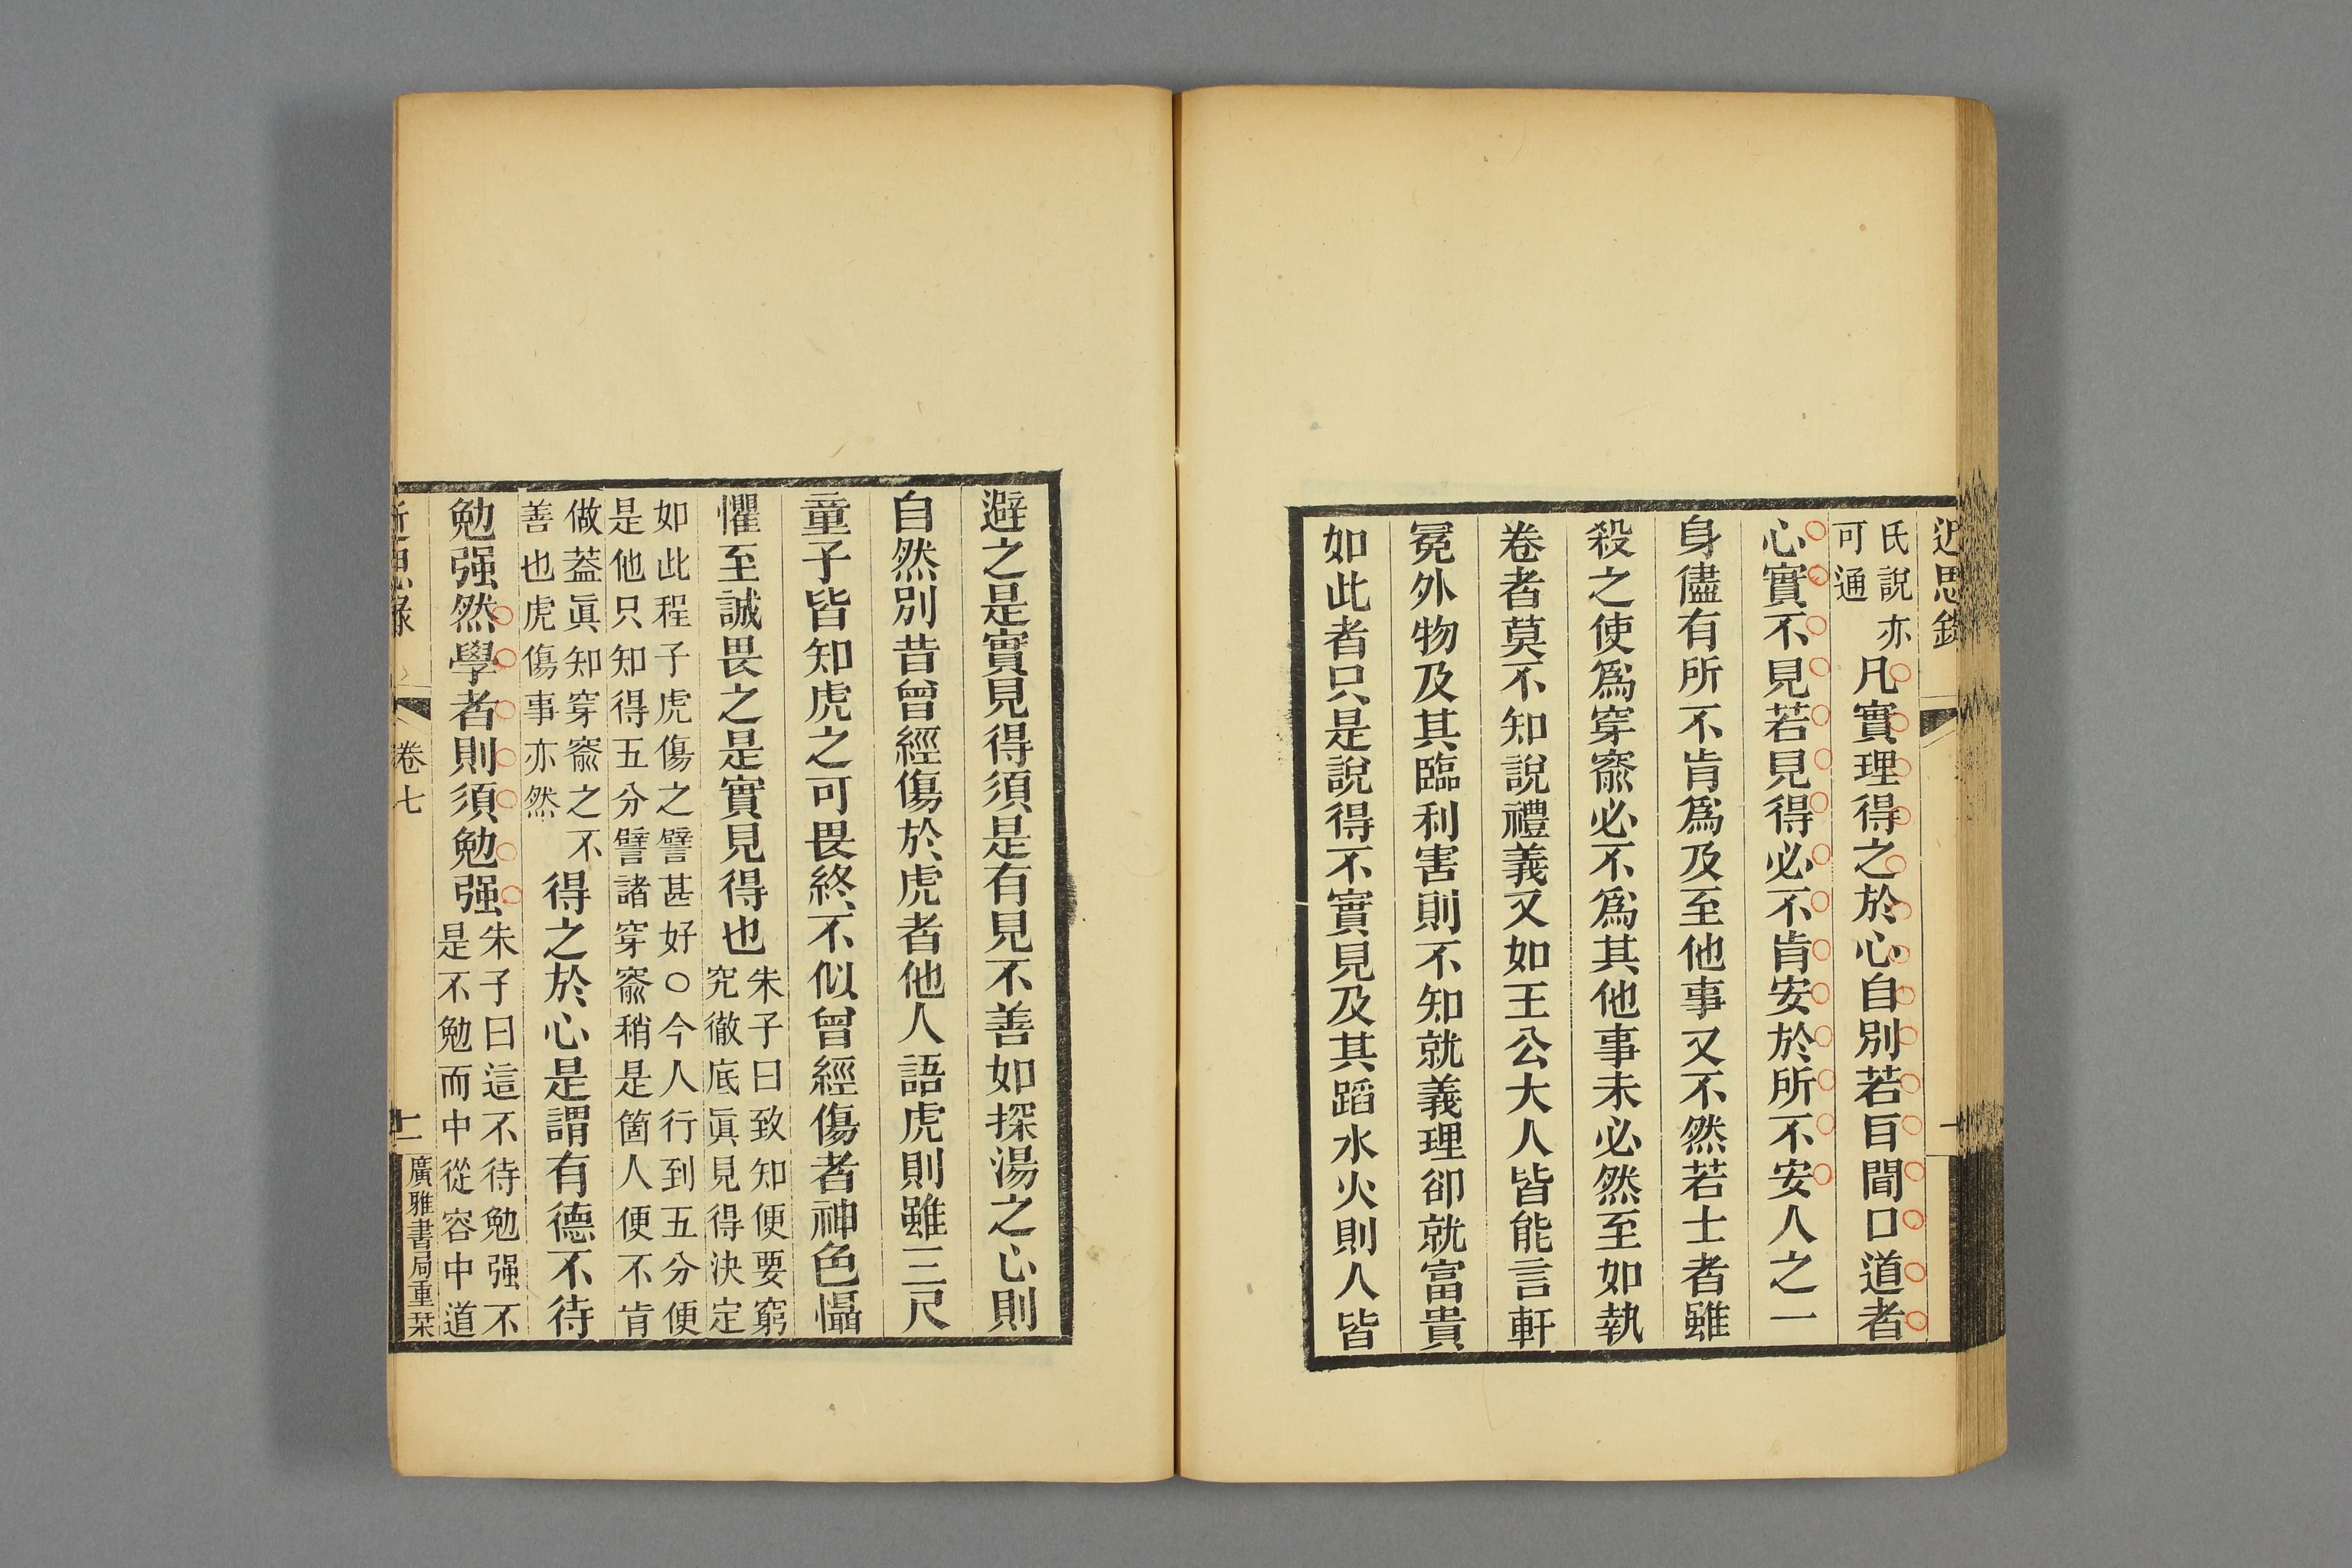 近思錄
氏說亦
可通
凡實理得之於心自別若耳聞口道者
心實不見若見得必不肯安於所不安人之一
身儘有所不肯爲及至他事又不然若士者雖
殺之使爲穿窬必不爲其他事未必然至如執
卷者莫不知說禮義又如王公大人皆能言軒
冕外物及其臨利害則不知就義理卻就富貴
如此者只是說得不實見及其蹈水火則人皆
避之是實見得須是有見不善如探湯之心則
自然別昔曾經傷於虎者他人語虎則雖三尺
童子皆知虎之可畏終不似曾經傷者神色懾
懼至誠畏之是實見得也
朱子曰致知便要窮
究徹底眞見得決定
如此程子虎傷之譬甚好○今人行到五分便
是他只知得五分譬諸穿窬稍是箇人便不肯
做蓋眞知穿窬之不
善也虎傷事亦然
得之於心是謂有德不待
勉强然學者則須勉强
朱子曰這不待勉强不
是不勉而中從容中道
近思錄
卷七
廣雅書局重栞